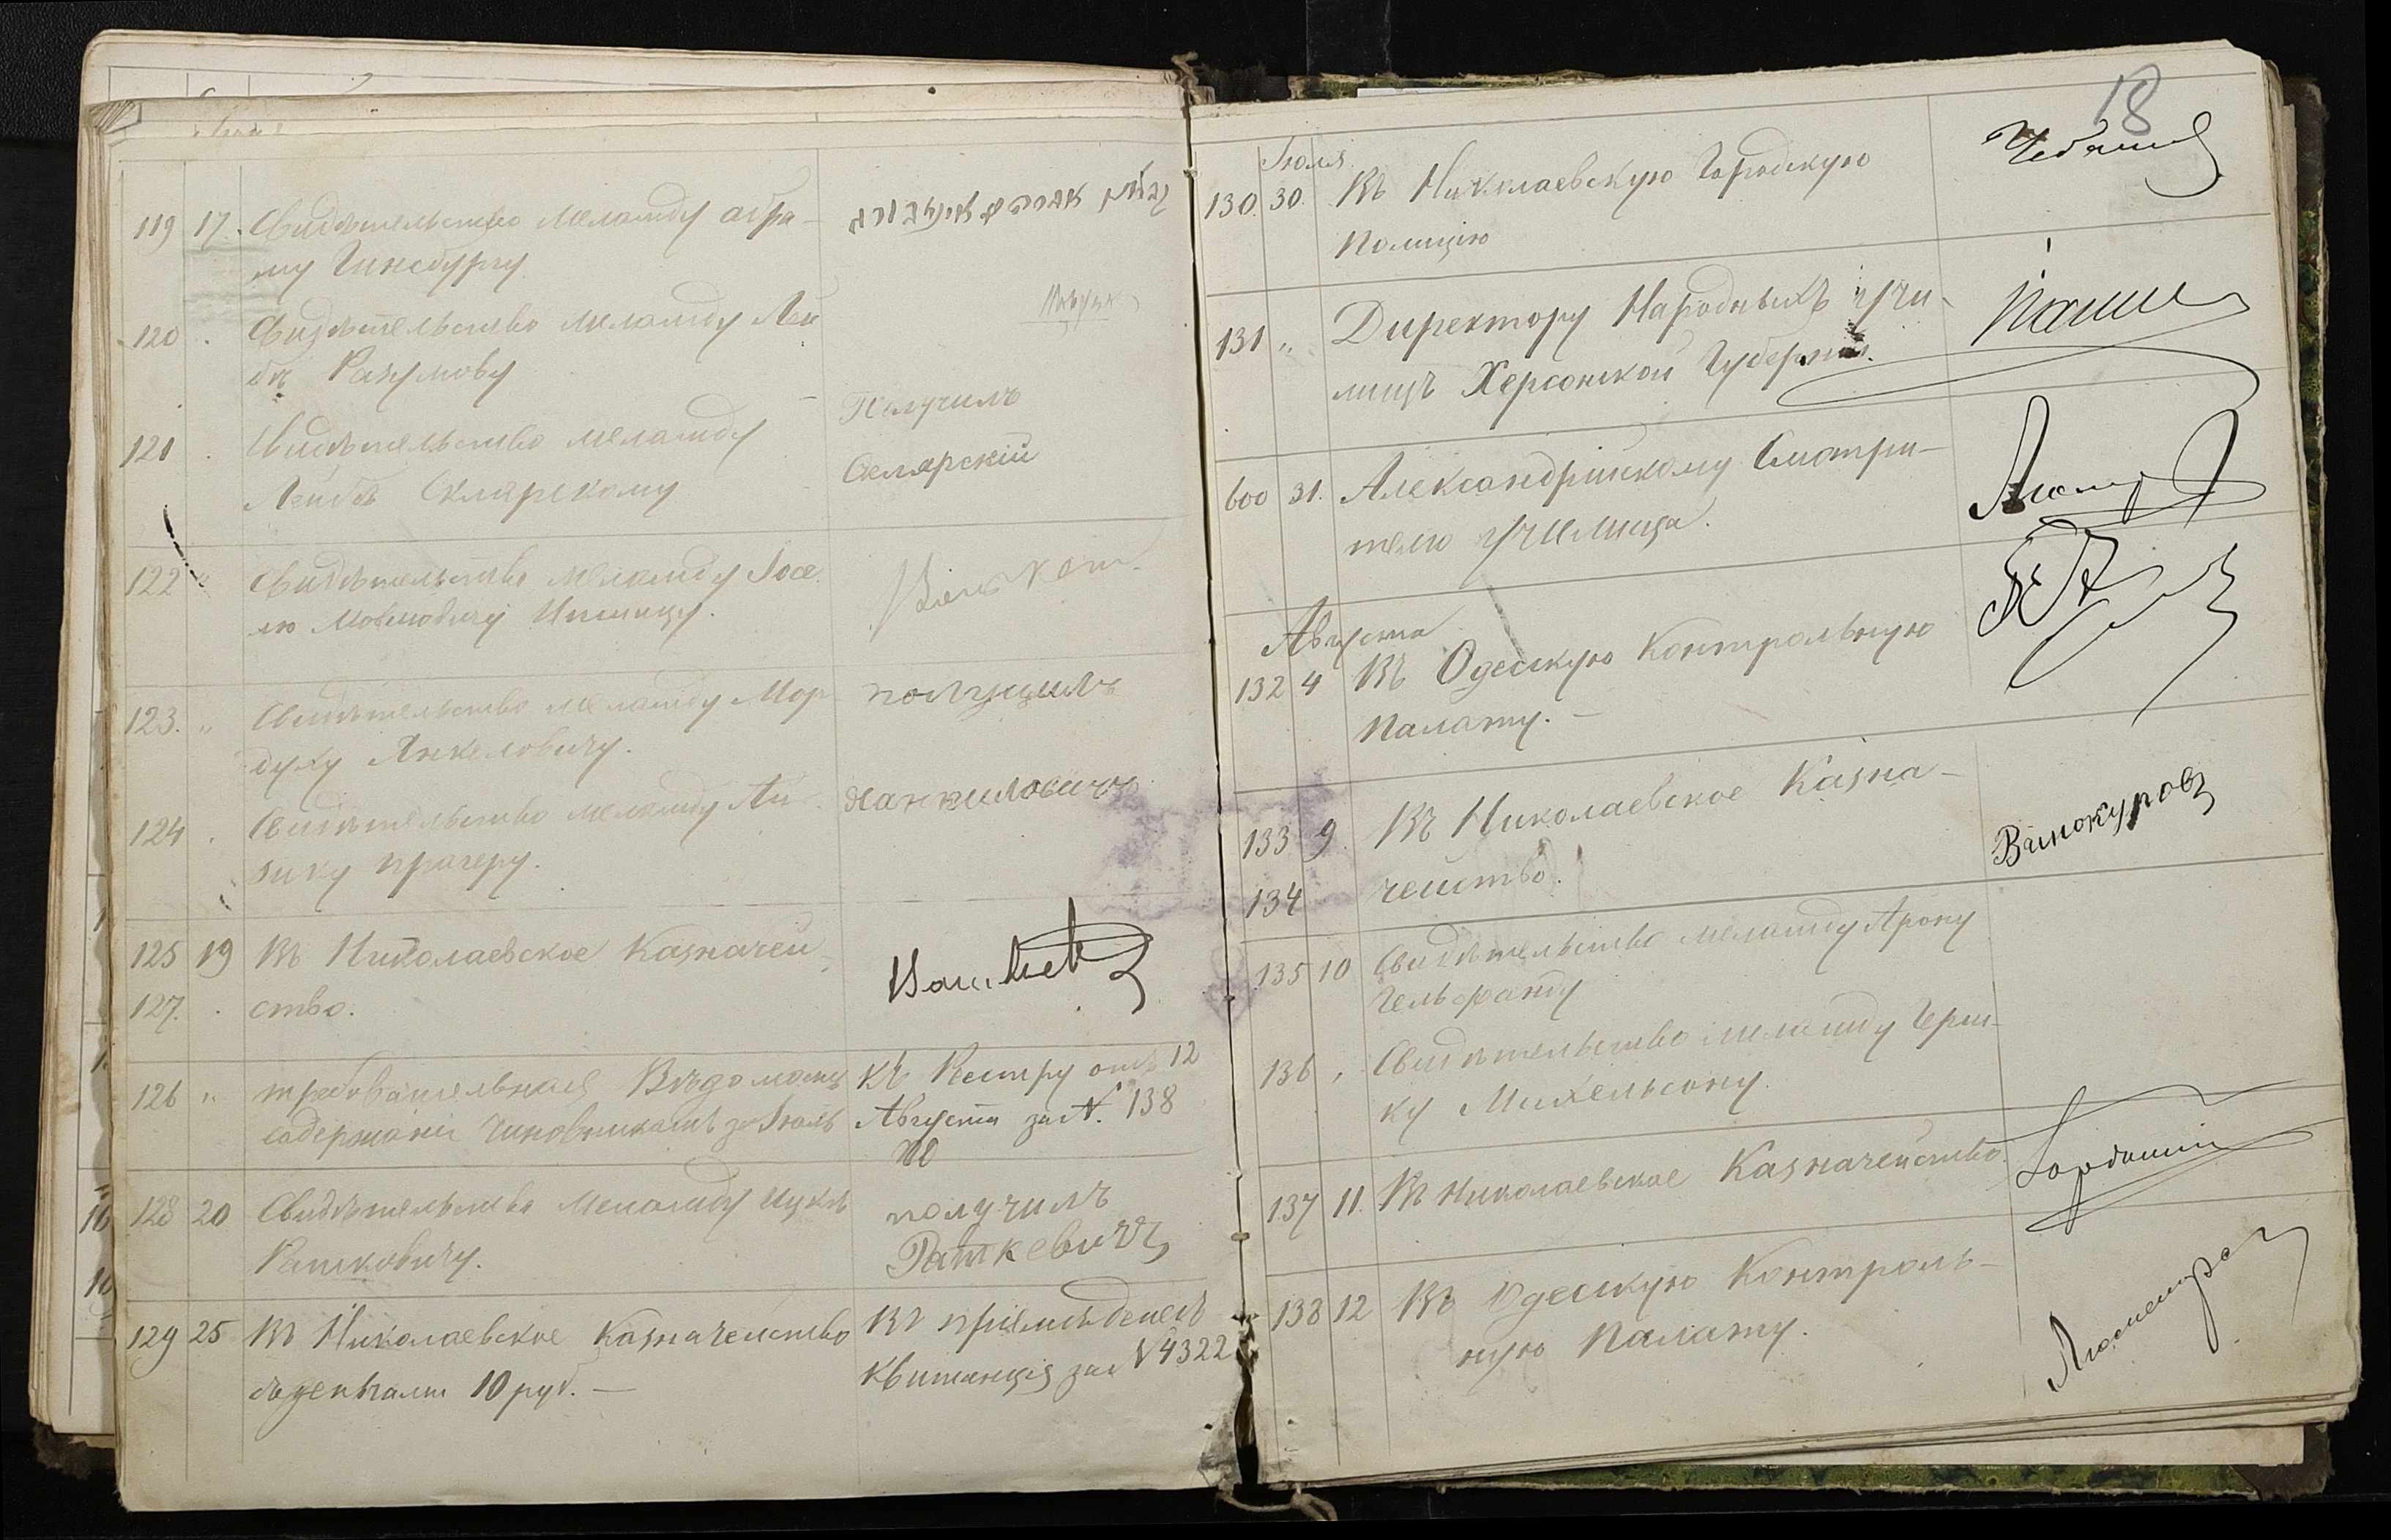 119 17. Свидѣтельство меламду Абра-
му Гинсбургу
120 Свидѣтельство меламду Лей
бѣ Разумову
121 Свидѣтельство меламду
Лейбѣ Склярскому
Получилъ
Склярскій
122 " Свидѣтельство меламду Іосе
лю
123. " Свидѣтельство меламду Мор
духу Янкеловичу.
получилъ
124 Свидѣтельство меламду Ай-
зику Прагеру.
125 19 Въ Николаевское Казначей
127. ство.
126 " требовательная Вѣдомость
содержанія чиновникамъ за Іюль
Къ Реестру отъ 12
Августа за № 138
128 20 Свидѣтельство Меламду Ицкѣ
Рашковичу.
получилъ
Раткевичъ
129 25 Въ Николаевское Казначейство
съ деньгами 10 руб. —
Въ пріемѣ денегъ
Квитанція за № 4322
18
Іюля
130. 30. Въ Николаевскую Городскую
Полицію
131 " Директору Народныхъ Учи-
лищъ Херсонской Губерніи.
600 31. Александрійскому Смотри-
телю Училища.
Августа
132 4 Въ Одесскую Контрольную
Палату. —
133 9 Въ Николаевское Казна-
134 чейство.
Винокуровъ
135 10 Свидѣтельство меламду Арону
Гельфанду
136 " Свидѣтельство меламду Герш-
ку Михельсону.
137 11. Въ Николаевское Казначейство.
138 12 Въ Одесскую Контроль-
ную Палату.